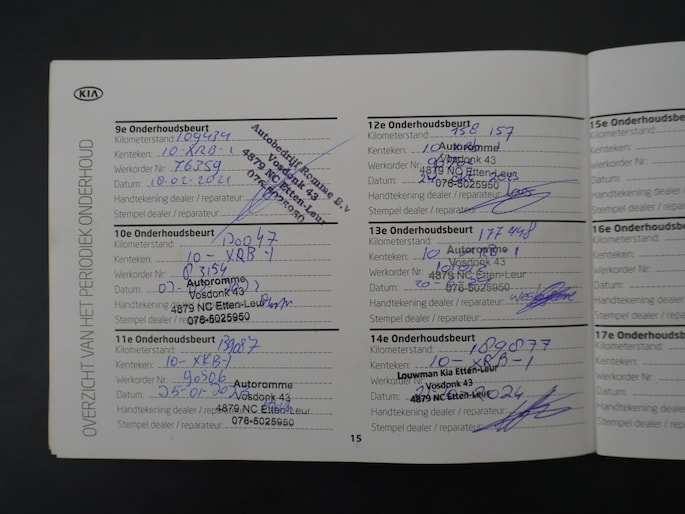 KIA
OVERZICHT VAN HET PERIODIEK ONDERHOUD
9e Onderhoudsbeurt
Kilometerstand: 109434
Kenteken: 10-XRB-1
Werkorder Nr: 76359
Datum: 18-02-2021
Handtekening dealer / reparateur:
Stempel dealer / reparateur:
Autobedrijf Romme B.V
Vosdonk 43
4879 NC Etten-Leur
076-5025950
10e Onderhoudsbeurt
Kilometerstand:
Kenteken: 10-XRB-1
Werkorder Nr: 83154
Datum:
Handtekening dealer
Stempel dealer / reparateur:
Autoromme
Vosdonk 43
4879 NC Etten-Leur
076-5025950
11e Onderhoudsbeurt
Kilometerstand:
Kenteken: 10-XRB-1
Werkorder Nr: 90506
Datum: 25-01-
Handtekening dealer / reparateur:
Stempel dealer / reparateur:
Autoromme
Vosdonk 43
4879 NC Etten-Leur
076-5025950
12e Onderhoudsbeurt
Kilometerstand: 158 157
Kenteken: 10
Werkorder Nr:
Datum:
Handtekening dealer / reparateur:
Stempel dealer / reparateur:
Autoromme
Vosdonk 43
4879 NC Etten-Leur
076-5025950
13e Onderhoudsbeurt
Kilometerstand: 177 448
Kenteken: 10
Werkorder Nr:
Datum:
Handtekening dealer / reparateur:
Stempel dealer / reparateur:
Autoromme
Vosdonk 43
4879 NC Etten-Leur
076-5025950
14e Onderhoudsbeurt
Kilometerstand: 189877
Kenteken: 10-XRB-1
Werkorder Nr:
Datum: 2024
Handtekening dealer / reparateur:
Stempel dealer / reparateur:
Louwman Kia Etten-Leur
Vosdonk 43
4879 NC Etten-Leur
15
15e Onderhoudsbe
Kilometerstand:
Kenteken:
Werkorder Nr:
Datum:
Handtekening deale
Stempel dealer / re
16e Onderhoudsbe
Kilometerstand:
Kenteken:
Werkorder Nr:
Datum:
Handtekening deal
Stempel dealer / re
17e Onderhoudsbe
Kilometerstand:
Kenteken:
Werkorder Nr:
Datum:
Handtekening dea
Stempel dealer / r